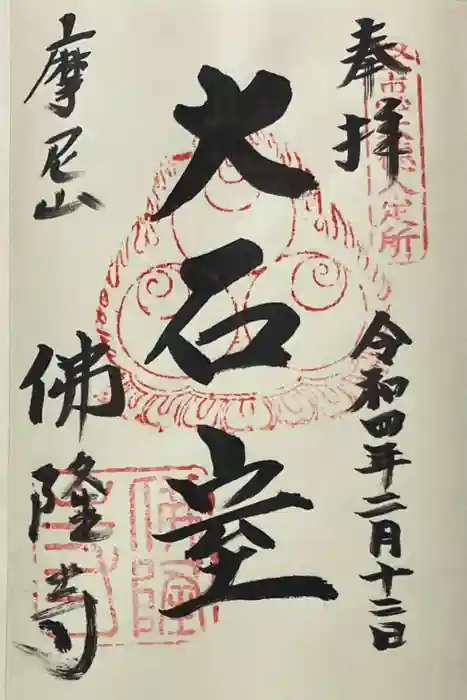 奉拝
令和四年二月十二日
大石室
摩尼山
佛隆寺